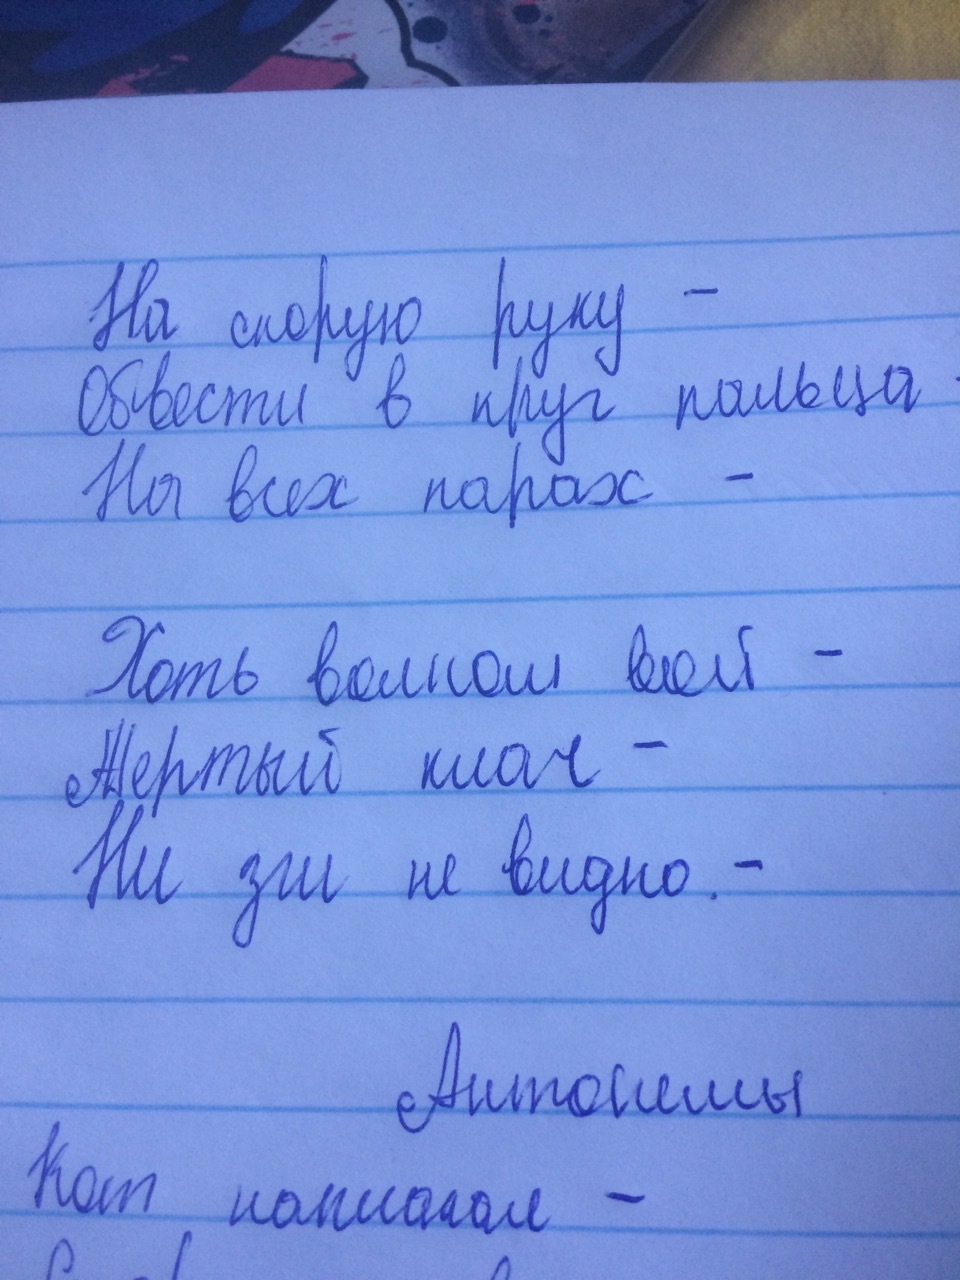 На скорую руку -
Обвести в круг пальца -
На всех парах -
Хоть волком вой -
Жертый клач -
Ни зги не видно. -
Антонимы
Кот наплакал -